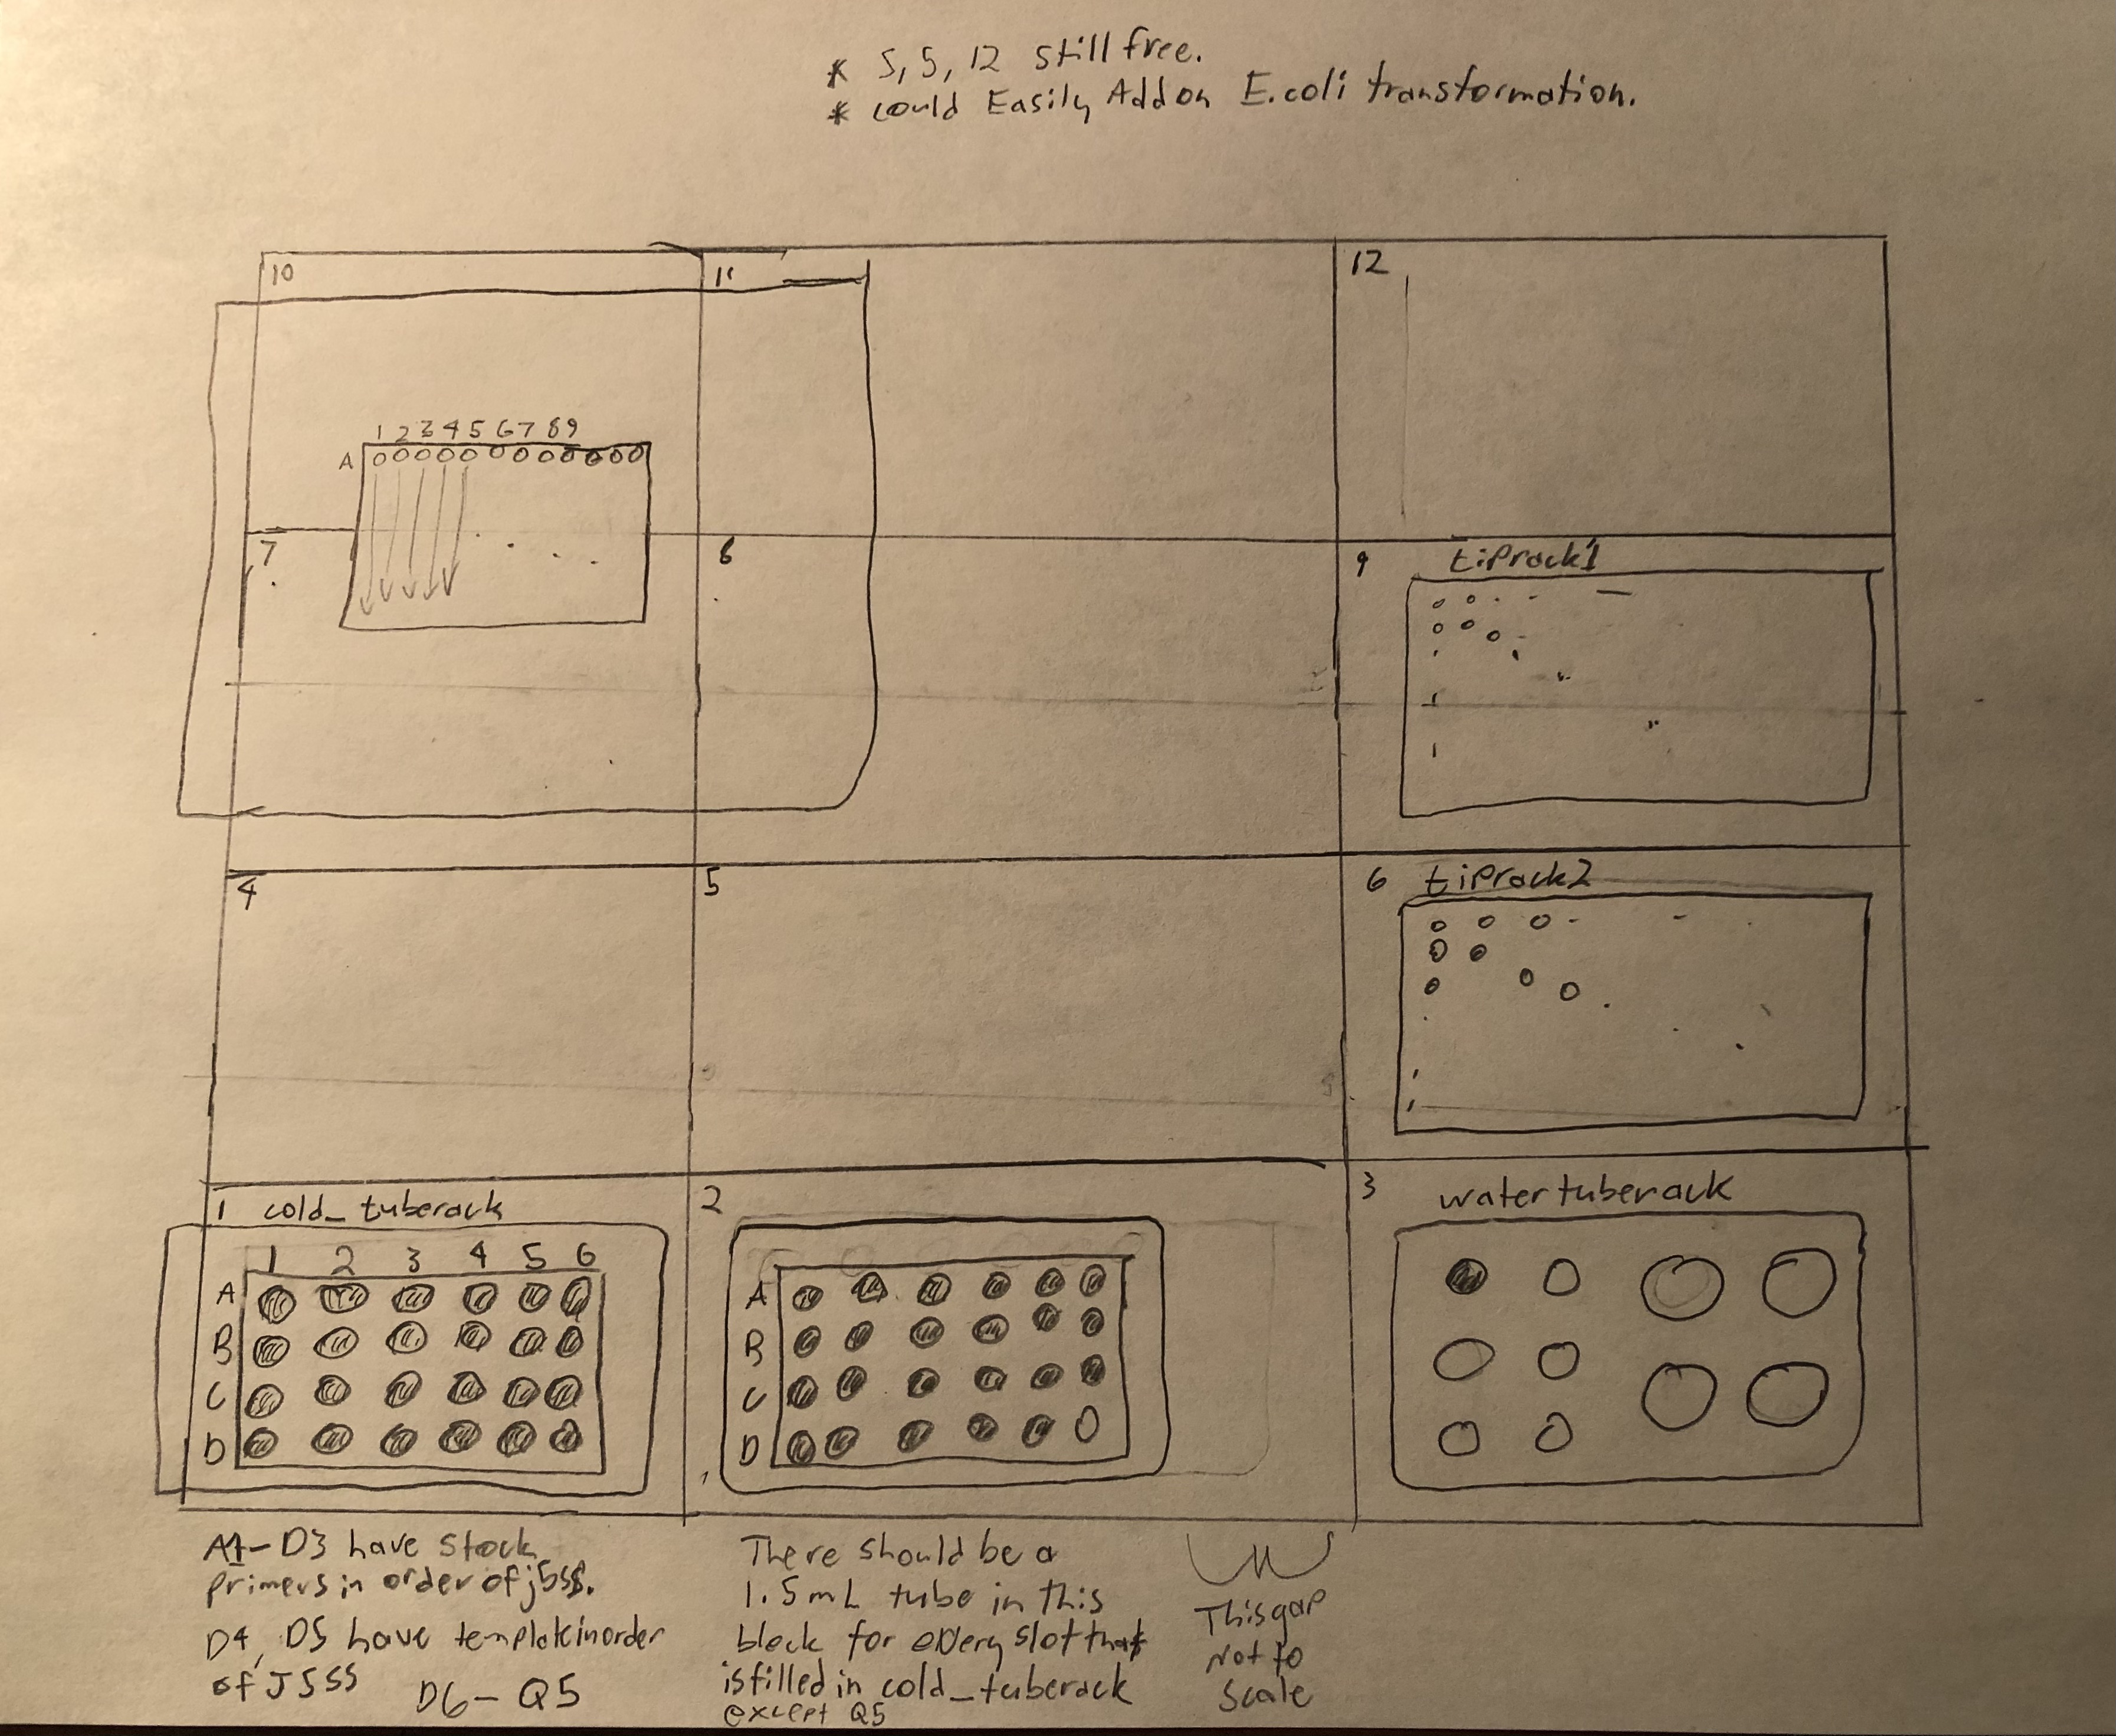 * 5, 5, 12 still free.
* could Easily Add on E.coli transformation.
10
11
12
1 2 3 4 5 6 7 8 9
A
7
8
9 tiprack1
4
5
6 tiprack2
1 cold_tuberack
2
3 watertuberack
1 2 3 4 5 6
A
B
C
D
A
B
C
D
A1-D3 have stock
primers in order of j5ss.
D4, D5 have template in order
of J5SS
D6- Q5
There should be a
1.5mL tube in this
block for every slot that
is filled in cold_tuberack
except Q5
This gap
Not to
Scale